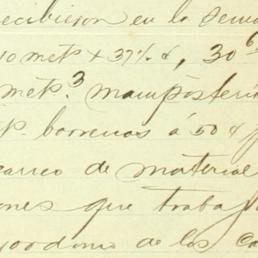 recibieron en la sema
10 metˢ + 37½ ¢, 30⁶
metˢ.³ mampostería
barrenos á 50 ¢ p
carreo de material
ones que trabaj
yordomo de los ca